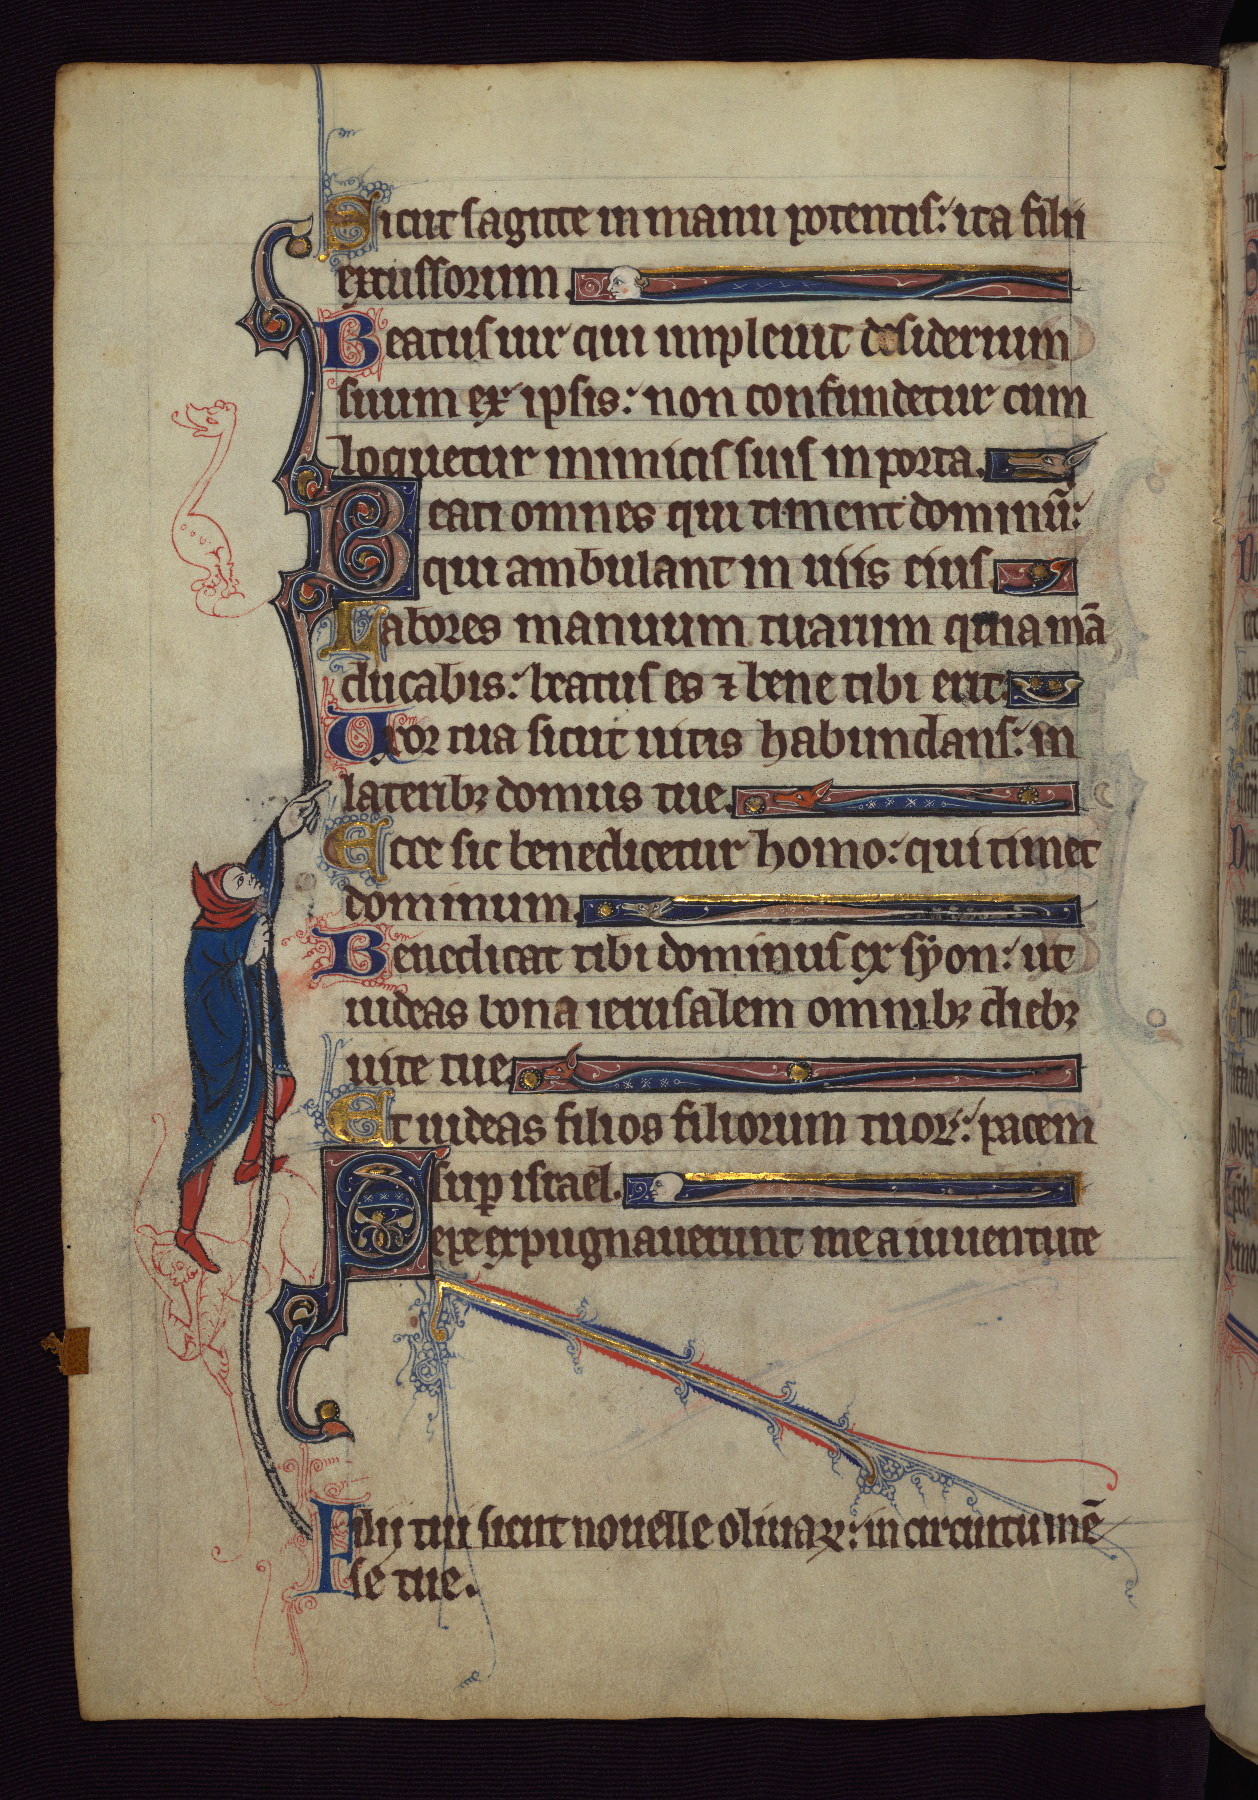 Sicut sagitte in manu potentis: ita filii
excussorum.
Beatus uir qui impleuit desiderium
suum ex ipsis: non confundetur cum
loquetur inimicis suis in porta.
Beati omnes qui timent dominū:
qui ambulant in uiis eius.
Labores manuum tuarum quia mā
ducabis: beatus es ⁊ bene tibi erit.
Uxor tua sicut uitis habundans: in
laterib; domus tue.
Ecce sic benedicetur homo: qui timet
dominum.
Benedicat tibi dominus ex syon: ut
uideas bona ierusalem omnib; dieb;
uite tue.
Et uideas filios filiorum tuoꝝ: pacem
suꝑ israel.
Sepe expugnauerunt me a iuuentute
Filij tui sicut nouelle oliuaꝝ: in circuitu mē
se tue.